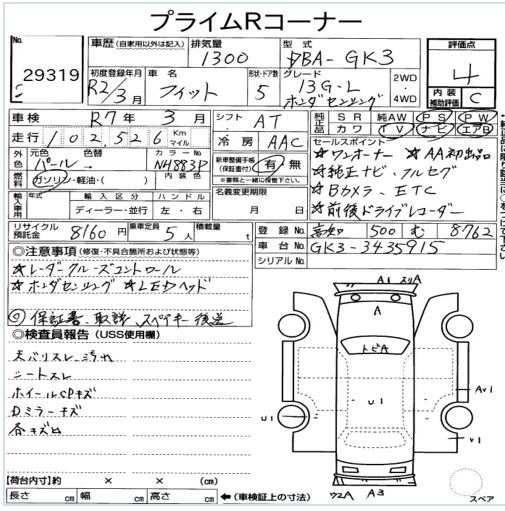 プライムRコーナー
No.
29319
車歴 (自家用以外は記入)
排気量
1300
型式
DBA-GK3
評価点
4
内装
補助評価
C
初度登録年月
R2/3月
車名
フィット
形状・ドア数
5
グレード
13G・L
ホンダセンシング
2WD
4WD
車検 R7年 3月
シフト AT
純正品
SR 純AW PS PW
カワ TV ナビ エアB
走行 102,526 Km
マイル
冷房 AAC
外色
元色 色替
パール
カラーNo
NH883P
新車整備手帳
(保証書付)
有・無
※書類と一緒に保管下さい。
セールスポイント
★ワンオーナー ★AA初出品
★純正ナビ、フルセグ
★Bカメラ、ETC
★前後ドライブレコーダー
燃料
ガソリン・軽油・( )
内装色
名義変更期限
月 日
輸入車用
年式
輸入区分
ハンドル
ディーラー・並行
左・右
リサイクル
預託金
8160円
乗車定員
5人
積載量
t
登録No
500 む 8762
車台No
GK3-3435915
シリアルNo
◎注意事項 (修復・不具合箇所および状態等)
★レーダークルーズコントロール
★ホンダセンシング ★LEDヘッド
保証書、取説、スペアキー後送
◎検査員報告 (USS使用欄)
天バリスレ、汚れ
シートスレ
ホイールCPキズ
Dミラーキズ
各キズ凹
A1
A
トビA
U1
U1
AV1
V1
A3
スペア
【荷台内寸】約 × × (cm)
長さ cm 幅 cm 高さ cm ←(車検証上の寸法)